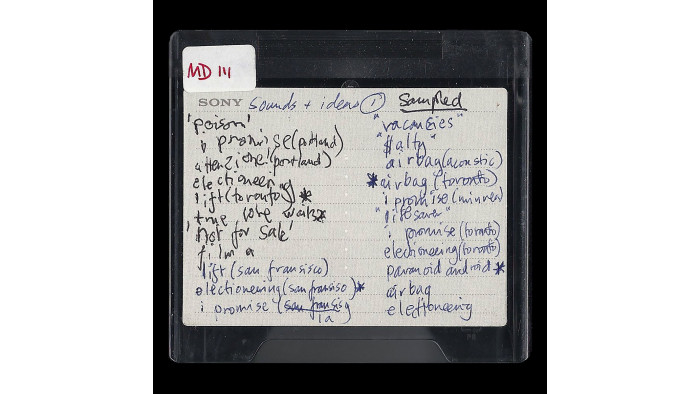 MD 111
SONY sounds + ideas 1 Sampled
'poison'
i promise (portland)
attenzione! (portland)
electioneering
lift (toronto) *
true love waits *
'not for sale'
film a
lift (san fransisco)
electioneering (san fransiso) *
i promise (san fransis
la)
"vacancies"
"$alty"
airbag (acoustic)
* airbag (toronto)
i promise
"lifesaver"
i promise (toronto)
electioneering (toronto)
paranoid android *
airbag
electioneering